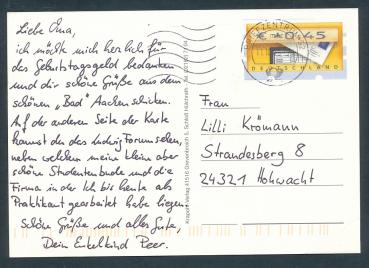 Liebe Oma,
ich möchte mich herzlich für
das Geburtstagsgeld bedanken
und dir schöne Grüße aus dem
schönen „Bad" Aachen schicken.
Auf der anderen Seite der Karte
kannst du das Ludwig Forum sehen,
neben welchem meine kleine aber
schöne Studentenbude und die
Firma in der Ich bis heute als
Praktikant gearbeitet habe liegen.
Schöne Grüße und alles Gute,
Dein Enkelkind Peer.
BRIEFZENTRUM
€ *0,45
DEUTSCHLAND
Frau
Lilli Krömann
Strandesberg 8
24321 Hohwacht